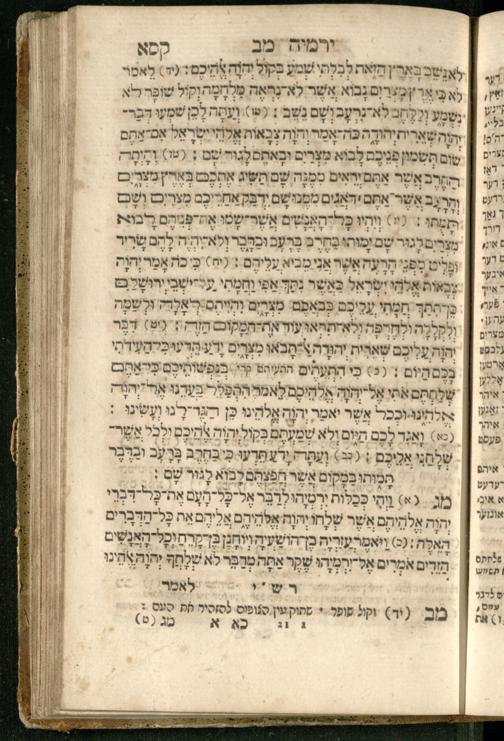 ירמיה מב קסא
לא נשב בארץ הזאת לבלתי שמע בקול יהוה אלהיכם : (יד) לאמר
לא כי ארץ מצרים נבוא אשר לא־נראה מלחמה וקול שופר לא
נשמע וללחם לא־נרעב ושם נשב : (טו) ועתה לכן שמעו דבר־
יהוה שארית יהודה כה־אמר יהוה צבאות אלהי ישראל אם־אתם
שום תשמון פניכם לבוא מצרים ובאתם לגור שם : (טז) והיתה
החרב אשר אתם יראים ממנה שם תשיג אתכם בארץ מצרים
והרעב אשר־אתם דאגים ממנו שם ידבק אחריכם מצרים ושם
תמתו : (יז) ויהיו כל־האנשים אשר־שמו את־פניהם לבוא
מצרים לגור שם ימותו בחרב ברעב ובדבר ולא־יהיה להם שריד
ופליט מפני הרעה אשר אני מביא עליהם : (יח) כי כה אמר יהוה
צבאות אלהי ישראל כאשר נתך אפי וחמתי על־ישבי ירושלם
כן תתך חמתי עליכם בבאכם מצרים והייתם לאלה ולשמה
ולקללה ולחרפה ולא־תראו עוד את־המקום הזה : (יט) דבר
יהוה עליכם שארית יהודה אל־תבאו מצרים ידע תדעו כי־העידתי
בכם היום : (כ) כי התעתים התעיתם קרי בנפשותיכם כי־אתם
שלחתם אתי אל־יהוה אלהיכם לאמר התפלל בעדנו אל־יהוה
אלהינו וככל אשר יאמר יהוה אלהינו כן הגד־לנו ועשינו :
(כא) ואגד לכם היום ולא שמעתם בקול יהוה אלהיכם ולכל אשר־
שלחני אליכם : (כב) ועתה ידע תדעו כי בחרב ברעב ובדבר
תמותו במקום אשר חפצתם לבוא לגור שם :
מג (א) ויהי ככלות ירמיהו לדבר אל־כל־העם את־כל־דברי
יהוה אלהיהם אשר שלחו יהוה אלהיהם אליהם את כל־הדברים
האלה : (ב) ויאמר עזריה בן־הושעיה ויוחנן בן־קרח וכל־האנשים
הזדים אמרים אל־ירמיהו שקר אתה מדבר לא שלחך יהוה אלהינו
רש״י לאמר
מב (יד) וקול שופר • שתוקעין הצופים להזהיר את העם :
כא א מג (ט)